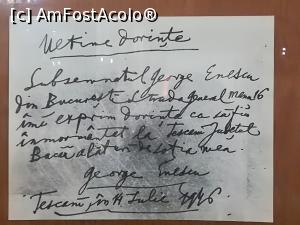 [c] AmFostAcolo®
Ultime dorințe
Subsemnatul George Enescu
din București Strada General Manu 16
îmi exprim dorința ca să fiu
înmormântat la Tescani județul
Bacău alături de soția mea.
George Enescu
Tescani în 14 Iulie 1946.